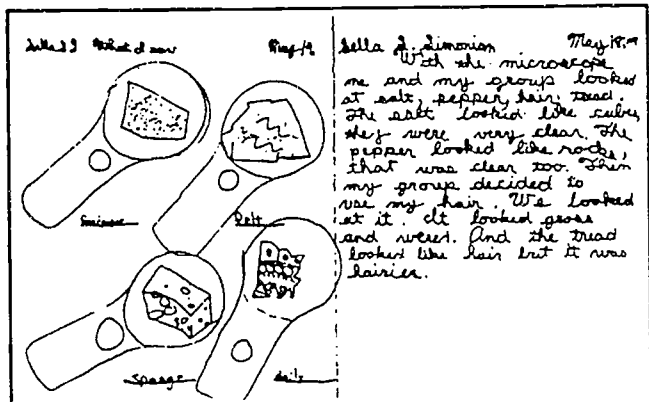 Sella S J What I saw May 18
Sella J. Simonian May 18,
With the microscope
me and my group looked
at salt, pepper, hair, tread.
The salt looked like cubes,
they were very clear. The
pepper looked like rocks,
that was clear too. Then
my group decided to
use my hair. We looked
at it. It looked gross
and weerd. And the tread
looked like hair but it was
hairier.
felt
sponge